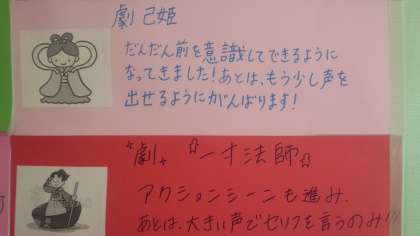 劇 己姫
だんだん前を意識してできるように
なってきました!あとは、もう少し声を
出せるようにがんばります!
劇 ☆一寸法師☆
アクションシーンも進み、
あとは、大きい声でセリフを言うのみ!!